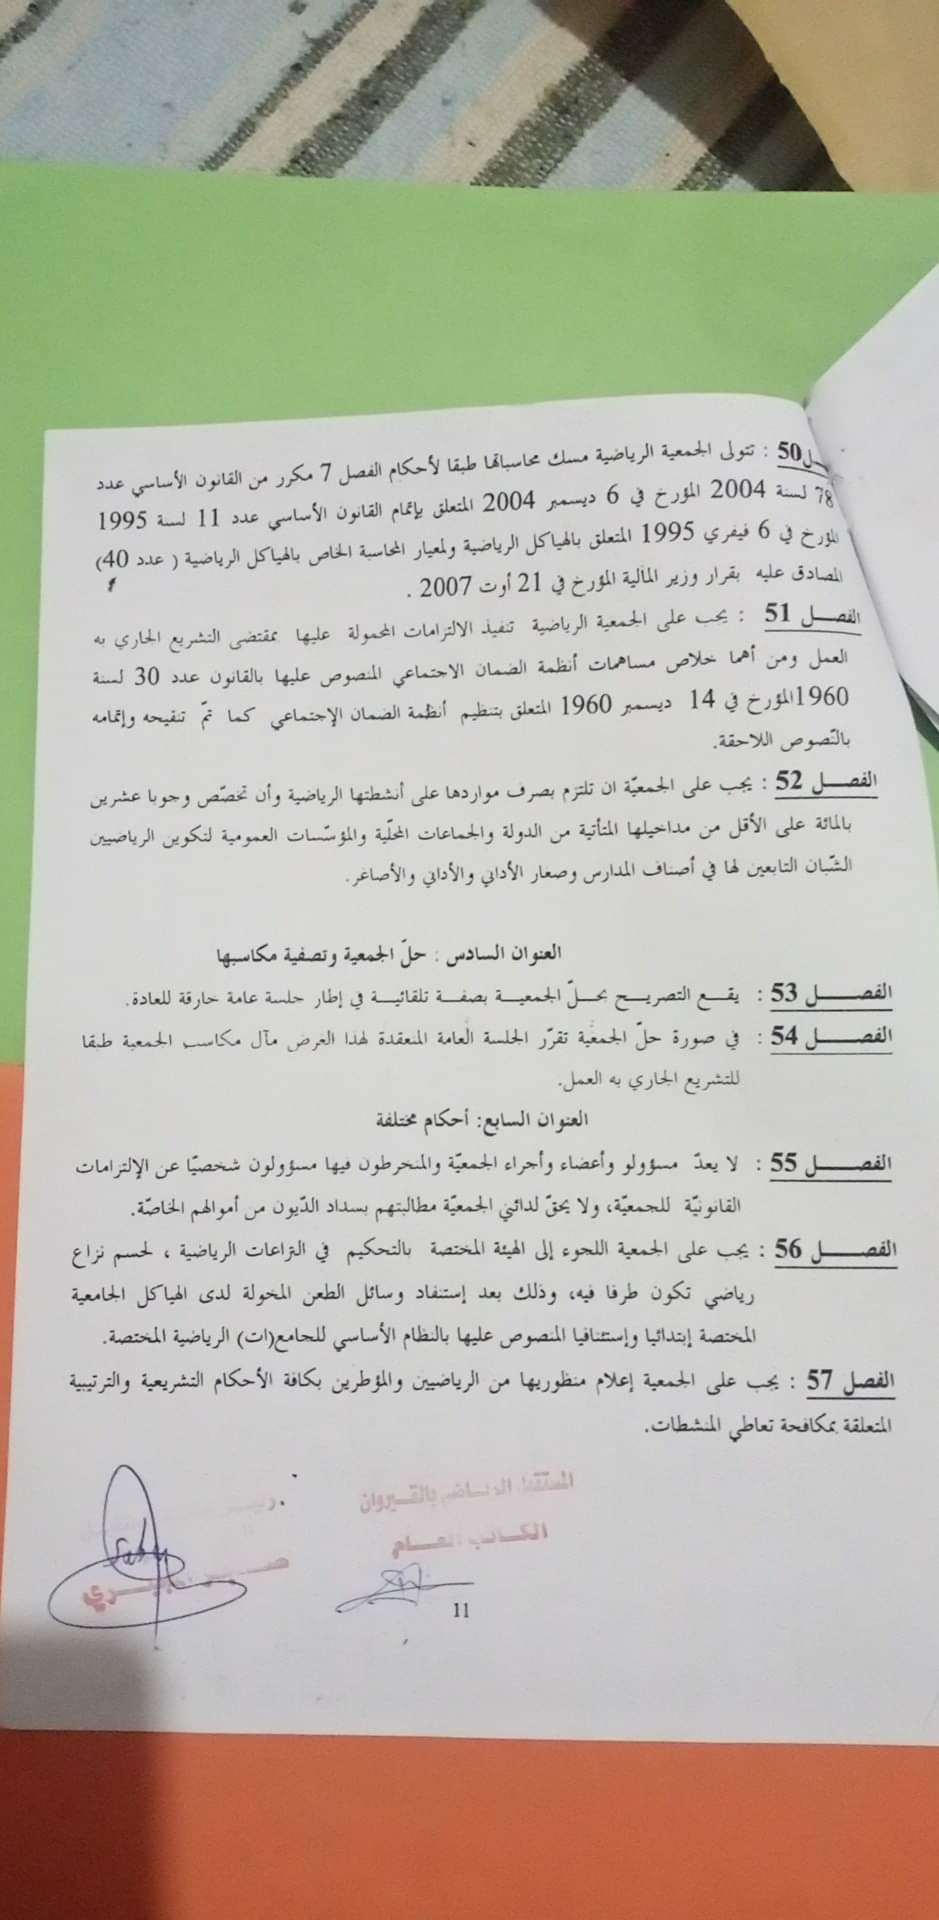 50 : تتولى الجمعية الرياضية مسك محاسباتها طبقا لأحكام الفصل 7 مكرر من القانون الأساسي عدد
78 لسنة 2004 المؤرخ في 6 ديسمبر 2004 المتعلق بإتمام القانون الأساسي عدد 11 لسنة 1995
المؤرخ في 6 فيفري 1995 المتعلق بالهياكل الرياضية ولمعيار المحاسبة الخاص بالهياكل الرياضية ( عدد 40)
المصادق عليه بقرار وزير المالية المؤرخ في 21 أوت 2007 .
الفصل 51 : يجب على الجمعية الرياضية تنفيذ الالتزامات المحمولة عليها بمقتضى التشريع الجاري به
العمل ومن أهما خلاص مساهمات أنظمة الضمان الاجتماعي المنصوص عليها بالقانون عدد 30 لسنة
1960المؤرخ في 14 ديسمبر 1960 المتعلق بتنظيم أنظمة الضمان الإجتماعي كما تمّ تنقيحه وإتمامه
بالنّصوص اللاحقة.
الفصل 52 : يجب على الجمعيّة ان تلتزم بصرف مواردها على أنشطتها الرياضية وأن تخصّص وجوبا عشرين
بالمائة على الأقل من مداخيلها المتأتية من الدولة والجماعات المحلّية والمؤسّسات العمومية لتكوين الرياضيين
الشّبان التابعين لها في أصناف المدارس وصغار الأداني والأداني والأصاغر.
العنوان السادس : حلّ الجمعية وتصفية مكاسبها
الفصل 53 : يقع التصريح بحلّ الجمعية بصفة تلقائية في إطار جلسة عامة خارقة للعادة.
الفصل 54 : في صورة حلّ الجمعيّة تقرّر الجلسة العامة المنعقدة لهذا الغرض مآل مكاسب الجمعية طبقا
للتشريع الجاري به العمل.
العنوان السابع: أحكام مختلفة
الفصل 55 : لا يعدّ مسؤولو وأعضاء وأجراء الجمعيّة والمنخرطون فيها مسؤولون شخصيّا عن الإلتزامات
القانونيّة للجمعيّة، ولا يحقّ لدائني الجمعيّة مطالبتهم بسداد الدّيون من أموالهم الخاصّة.
الفصل 56 : يجب على الجمعية اللجوء إلى الهيئة المختصة بالتحكيم في النزاعات الرياضية ، لحسم نزاع
رياضي تكون طرفا فيه، وذلك بعد إستنفاد وسائل الطعن المخولة لدى الهياكل الجامعية
المختصة إبتدائيا وإستئنافيا المنصوص عليها بالنظام الأساسي للجامع(ات) الرياضية المختصة.
الفصل 57 : يجب على الجمعية إعلام منظوريها من الرياضيين والمؤطرين بكافة الأحكام التشريعية والترتيبية
المتعلقة بمكافحة تعاطي المنشطات.
المستقبل الرياضي بالقيروان
الكاتب العام
11